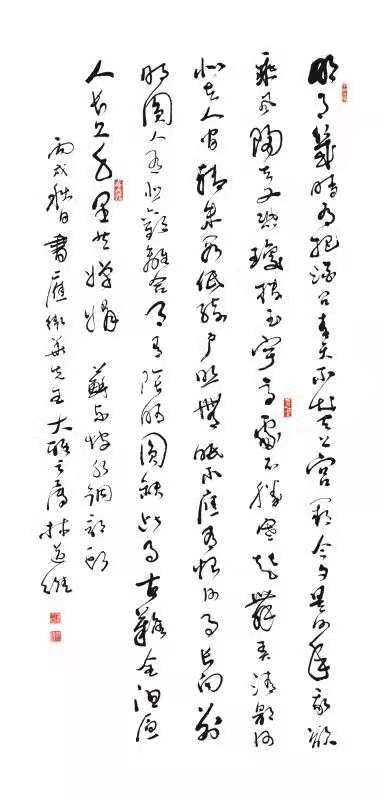 明月幾時有把酒問青天不知天上宮闕今夕是何年我欲
乘風歸去又恐瓊樓玉宇高處不勝寒起舞弄清影何
似在人間轉朱閣低綺戶照無眠不應有恨何事長向別
時圓人有悲歡離合月有陰晴圓缺此事古難全但願
人長久千里共嬋娟 蘇東坡水調歌頭
丙戌秋日書應先生大雅之屬林